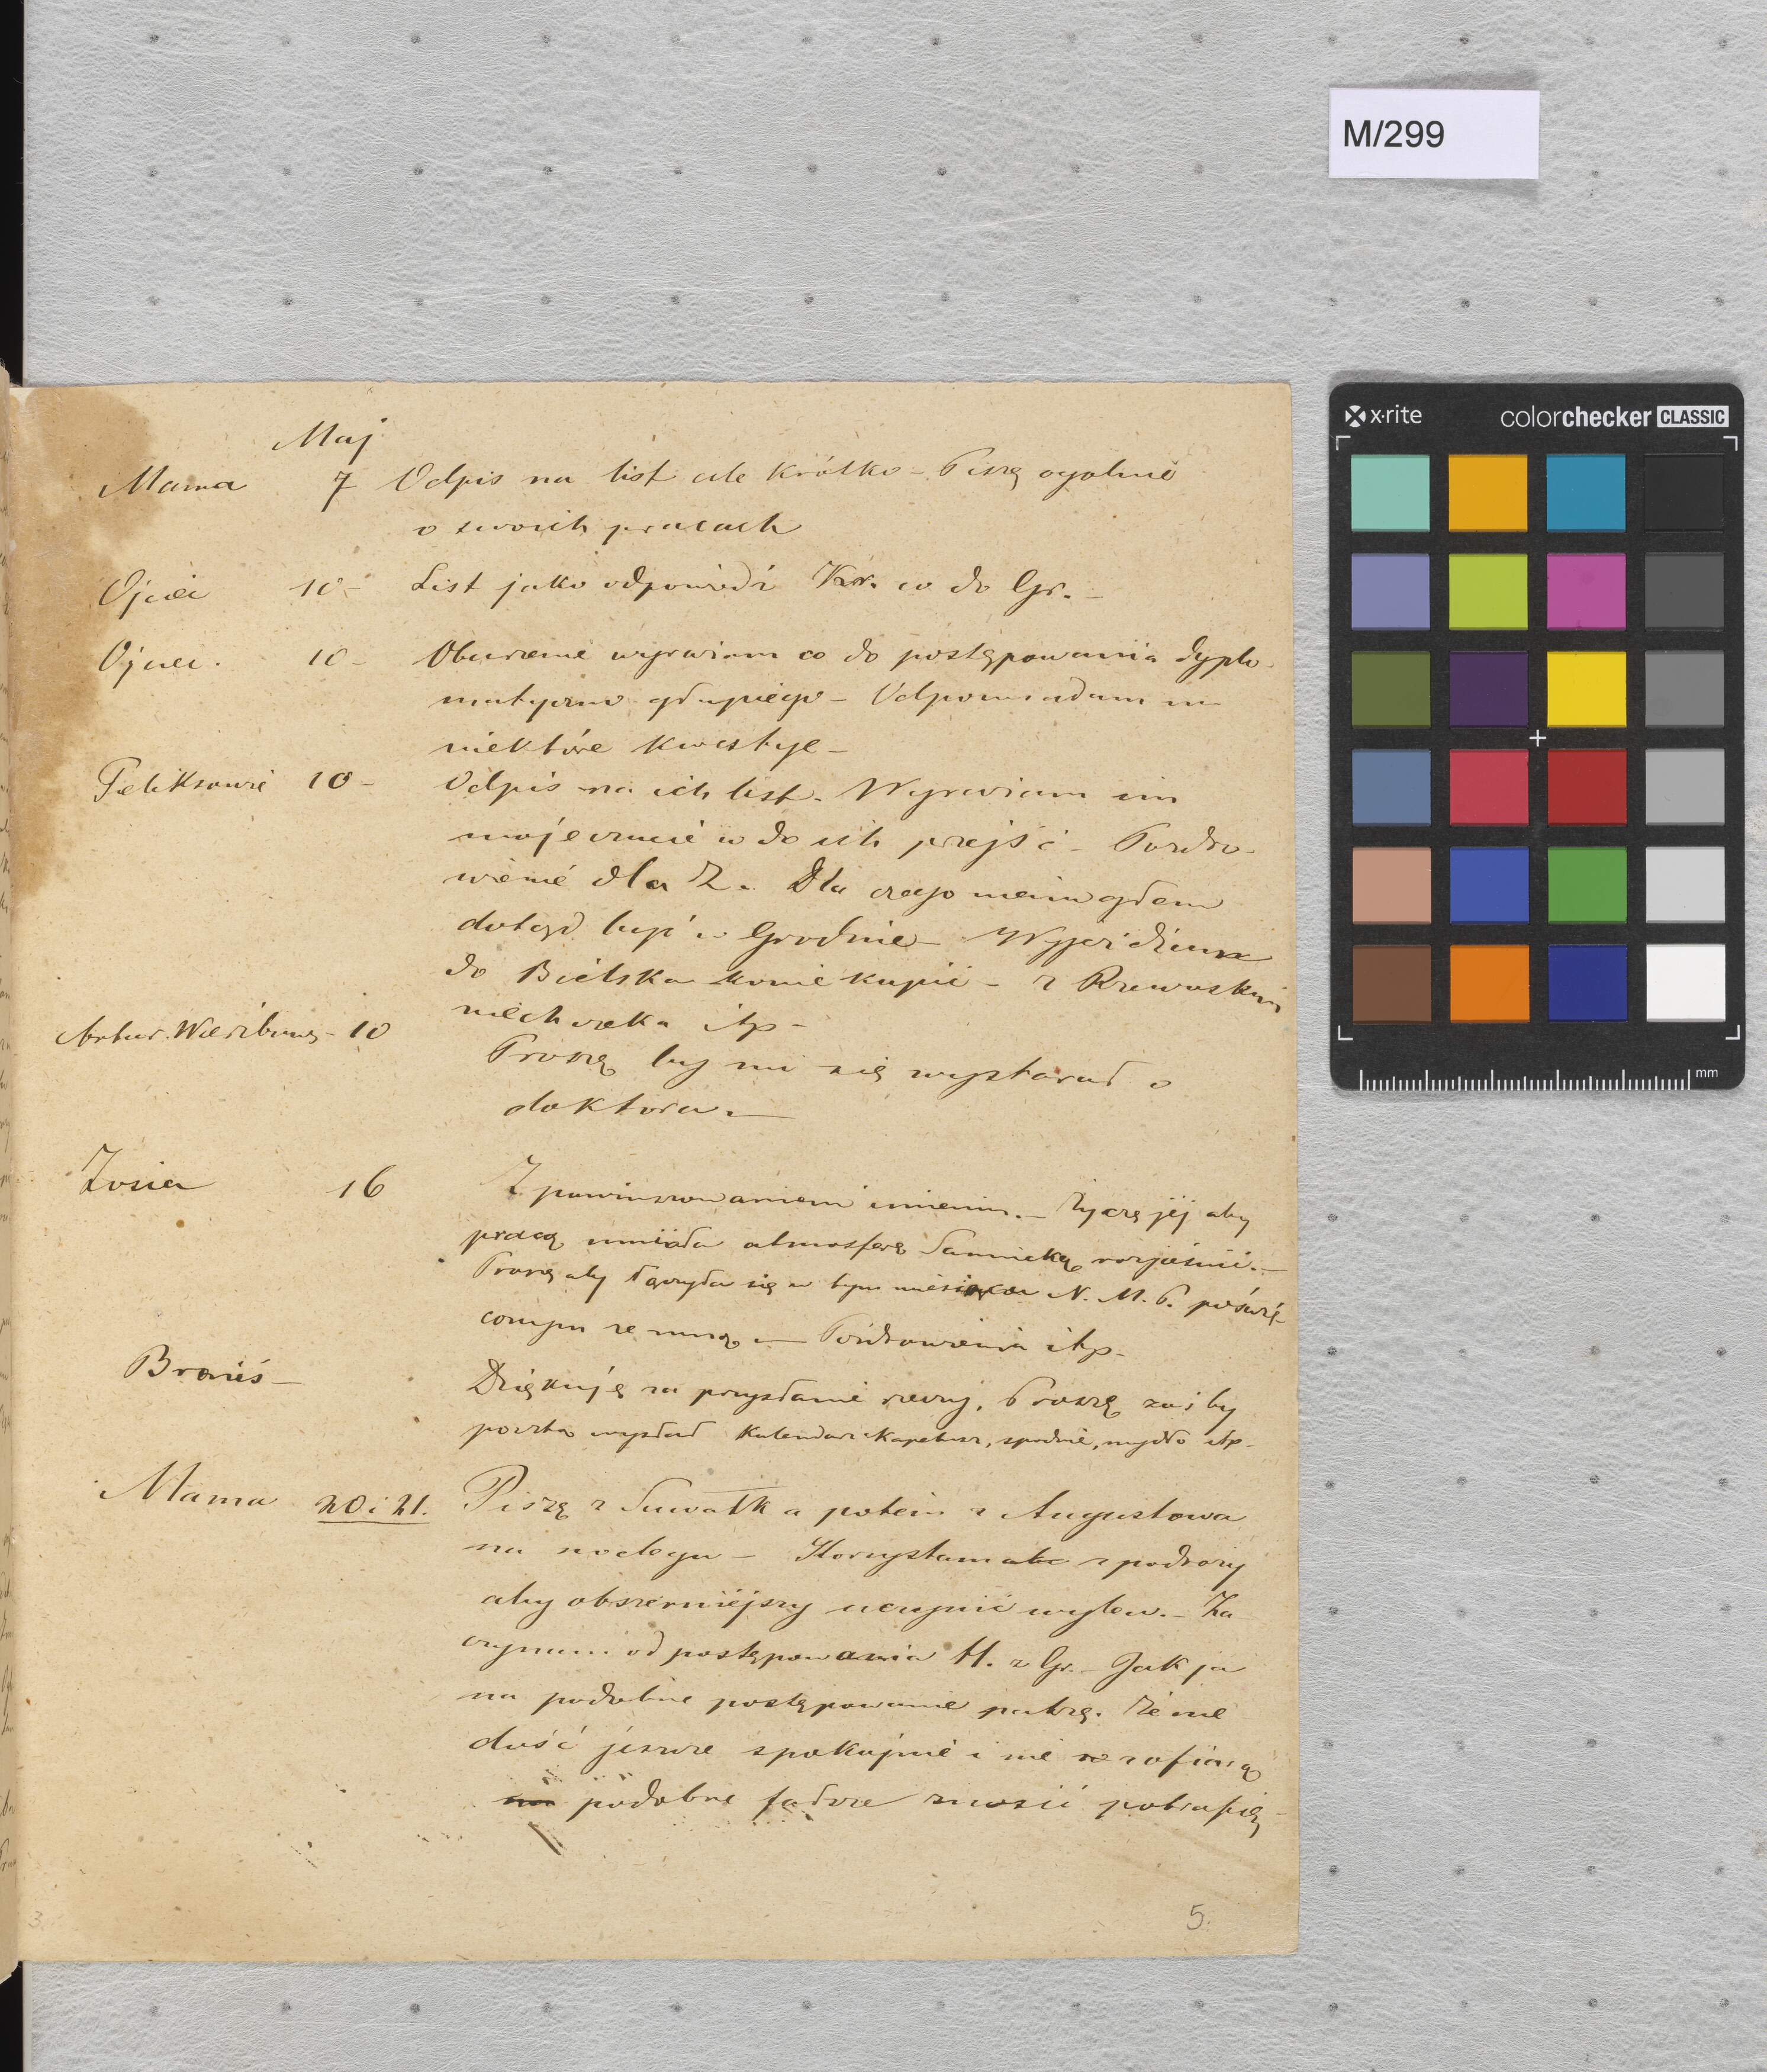 M/299
x·rite
colorchecker CLASSIC
mm
Maj
Mama 7 Odpis na list ale krótko – Piszę ogolnie
o swoich pracach
Ojciec 10 – List jako odpowiedź Kr. co do Gr. –
Ojciec. 10 – Oburzenie wyrażam co do postępowania dyplo-
matyczno głupiego – Odpowiadam na
niektóre kwestye –
Feliksowie 10 – Odpis na ich list. Wyrażam im
moje uczucie co do ich przejść – Pozdro-
wienie dla Z. Dla czego niemogłem
dotąd być w Grodnie – Wyjeżdżam
do Bielska konie kupić – z Rzewuskim
niech czeka itp –
Artur 10
Proszę by mi się wystarał o
doktora. –
Zosia 16 Z powinszowaniem imienin. – Życzę jej aby
pracą umiała atmosferę rozjaśnić. –
Proszę aby łączyła się w tym miesiącu N. M. P. poświę-
conym ze mną – Pozdrowienia itp –
Broniś –
Dziękuję za przysłanie rzeczy. Proszę zaś by
pocztą wysłał Kalendarz Kapelusz, spodnie, mydło itp –
Mama 20 i 21. Piszę z Suwałk a potem z Augustowa
na noclegu – Korzystam z podroży
aby obszerniejszy uczynić wylew. – Za
czynam od postępowania H. z Gr. – Jak ja
na podobne postępowanie patrzę. Że nie
dość jeszcze spokojnie i nie z ofiarą
podobne fałsze znosić potrafię –
3.
5.